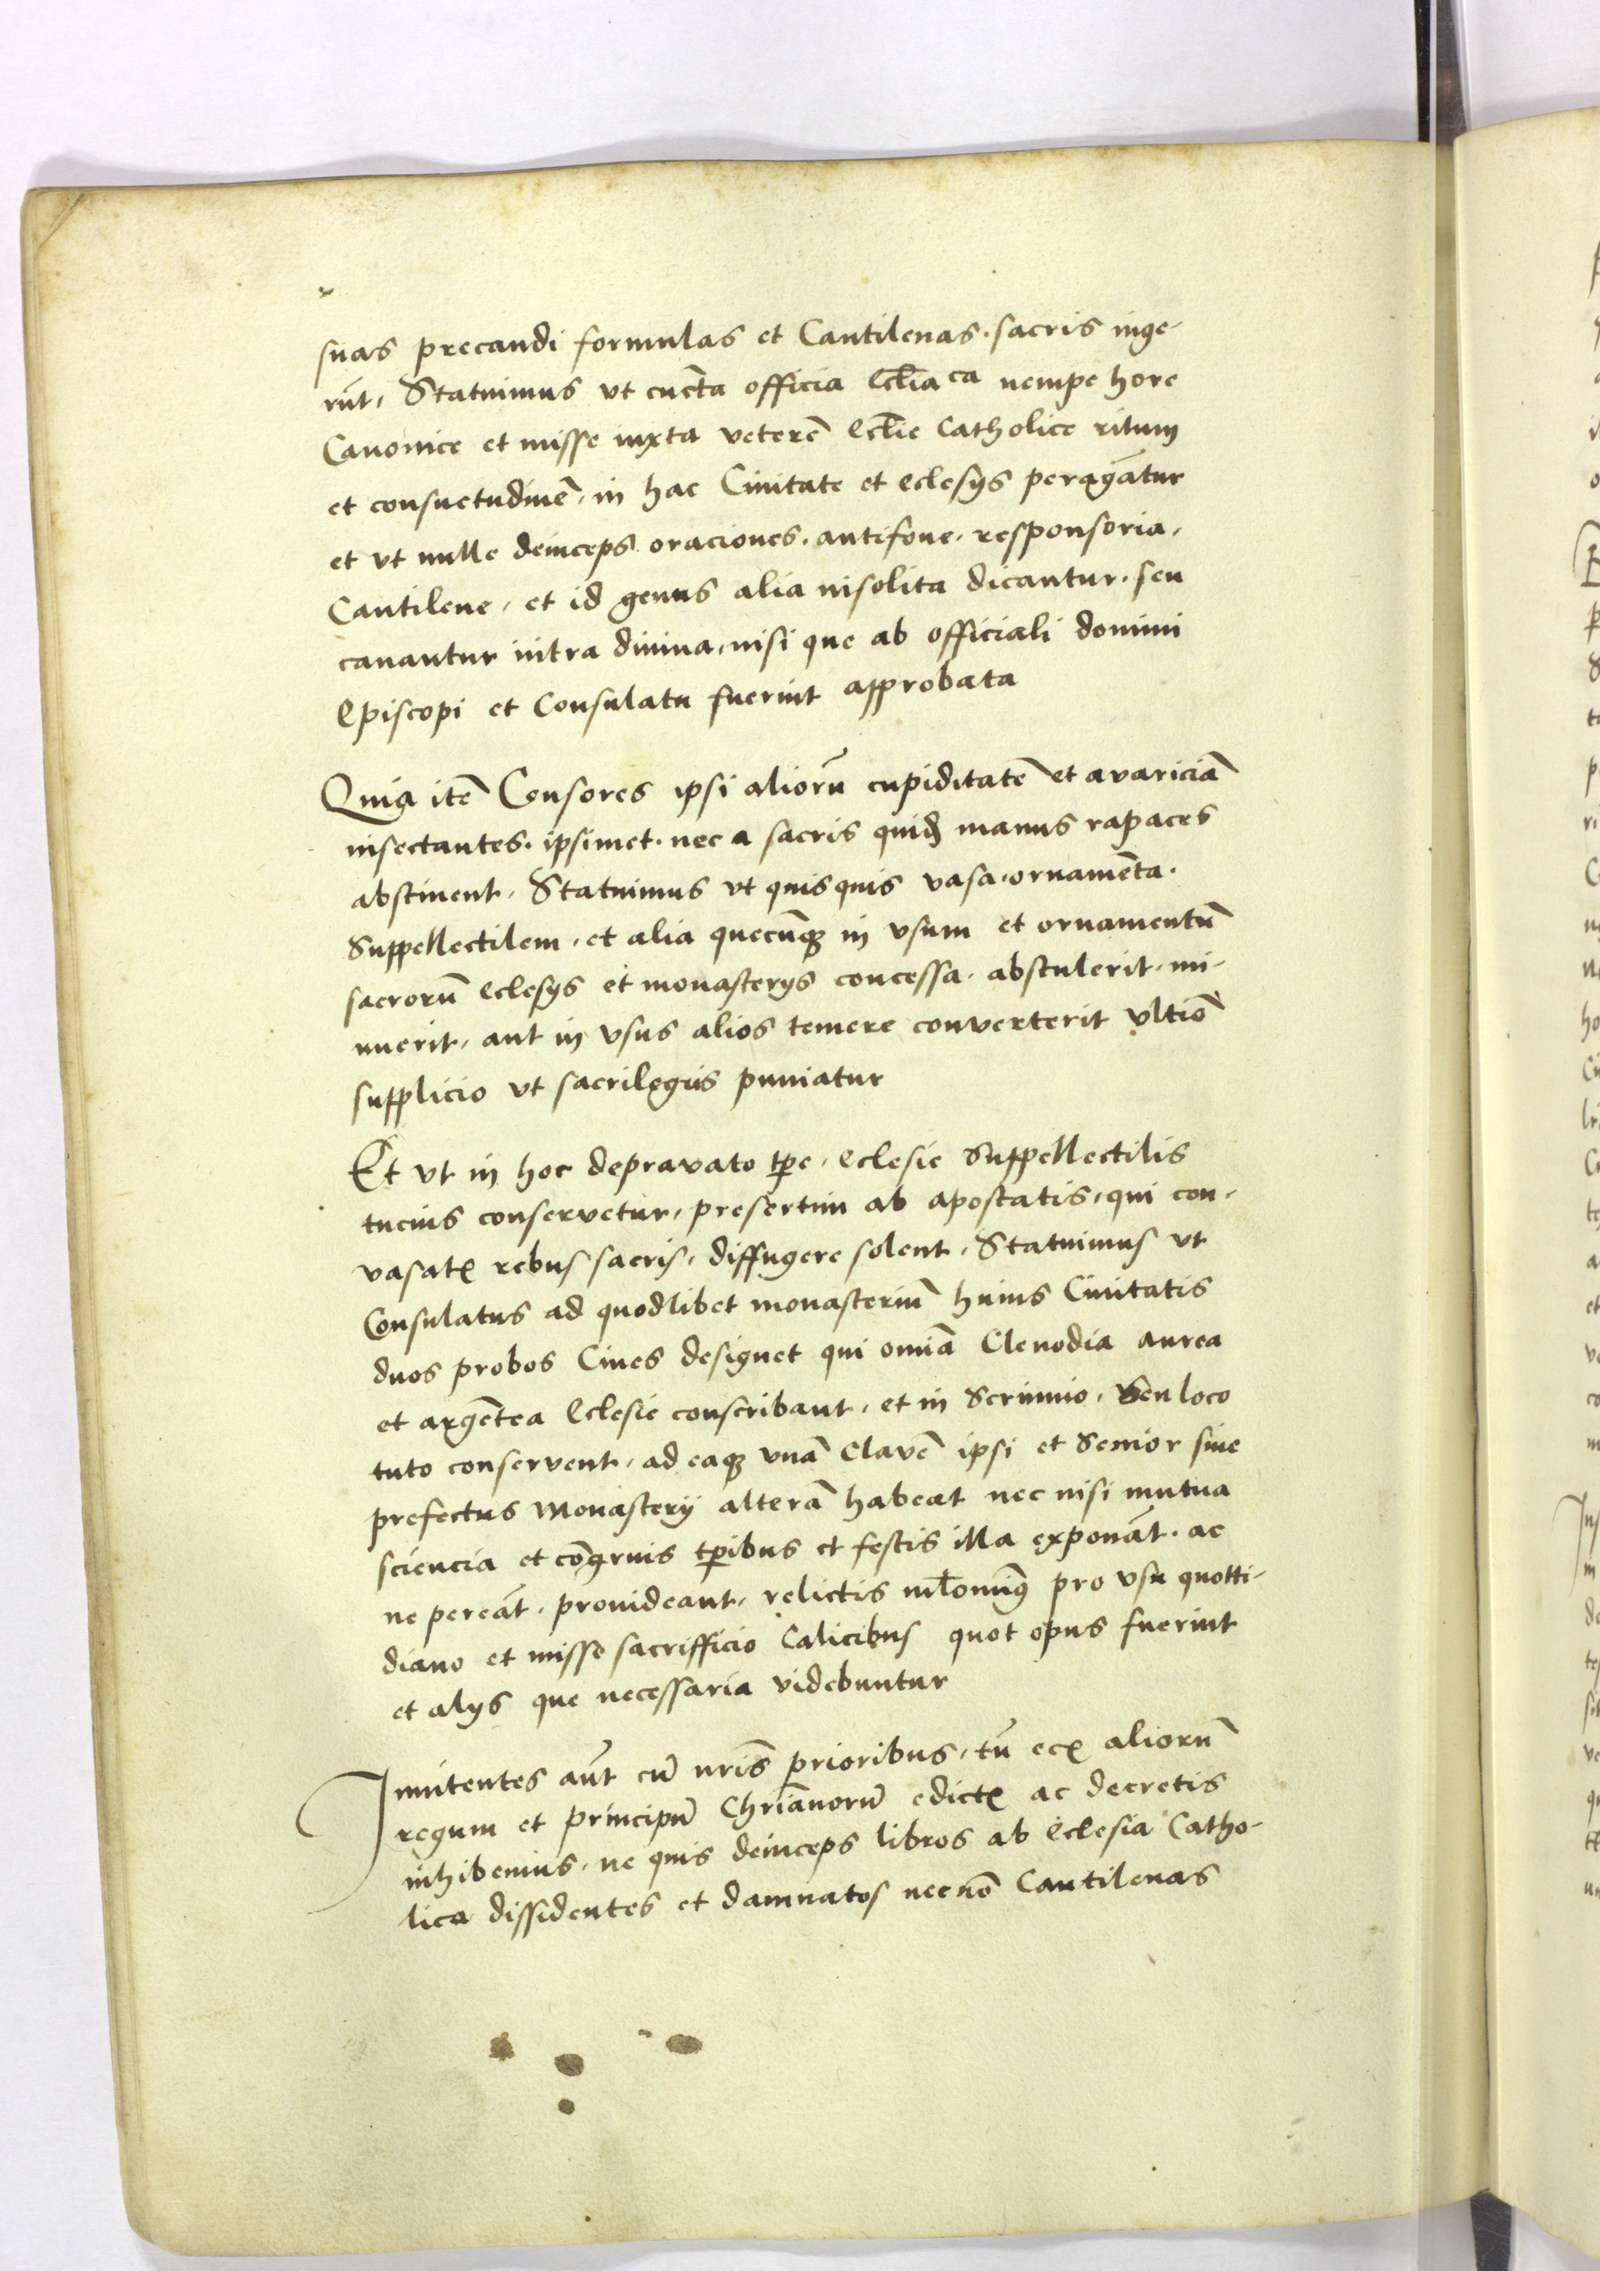 suas precandi formulas et Cantilenas. sacris inge-
rūt, Statuimus vt cūcta officia Eccl̄ia ca nempe hore
Canonice et misse iuxta veterē Eccl̄ie Catholice ritum
et consuetudinē, in hac Ciuitate et Eclesijs peragātur
et vt nulle deinceps oraciones. antifone. responsoria,
Cantilene, et id genus alia insolita dicantur. seu
canantur intra diuina, nisi que ab officiali domini
Episcopi et Consulatu fuerint approbata
Quia itē Censores ipsi aliorū cupiditatē et avariciā
insectantes. ipsimet. nec a sacris quidē manus rapaces
abstinent, Statuimus vt quisquis vasa. ornamēta.
Suppellectilem, et alia quecūqꝫ in vsum et ornamentū
sacrorū Eclesijs et monasterijs concessa. abstulerit, mi-
nuerit, aut in vsus alios temere converterit vltiō
supplicio vt sacrilegus puniatur
Et vt in hoc depravato tp̄e, Eclesie Suppellectilis
tucius conservetur, presertim ab apostatis, qui con-
vasatꝭ rebus sacris, diffugere solent, Statuimus vt
Consulatus ad quodlibet monasteriū huius Ciuitatis
duos probos Ciues designet qui omīa Clenodia aurea
et argētea Eclesie conscribant, et in Scrinnio, Seu loco
tuto conservent, ad eaqꝫ vnā Clavē ipsi et Senior siue
prefectus Monasterij alterā habeat nec nisi mutua
sciencia et cōgruis tp̄ibus et festis illa exponāt. ac
ne pereāt, prouideant, relictis nīl̄ominꝰ pro vsu quotti-
diano et misse sacrifficio Calicibus quot opus fuerint
et alijs que necessaria videbuntur
Innitentes aūt cū nr̄is prioribus, tū ecꝭ aliorū
regum et principū Chr̄ianorū edictꝭ ac decretis
inhibemus, ne quis deinceps libros ab Eclesia Catho-
lica dissidentes et damnatos necnō Cantilenas